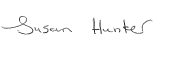 Susan Hunter